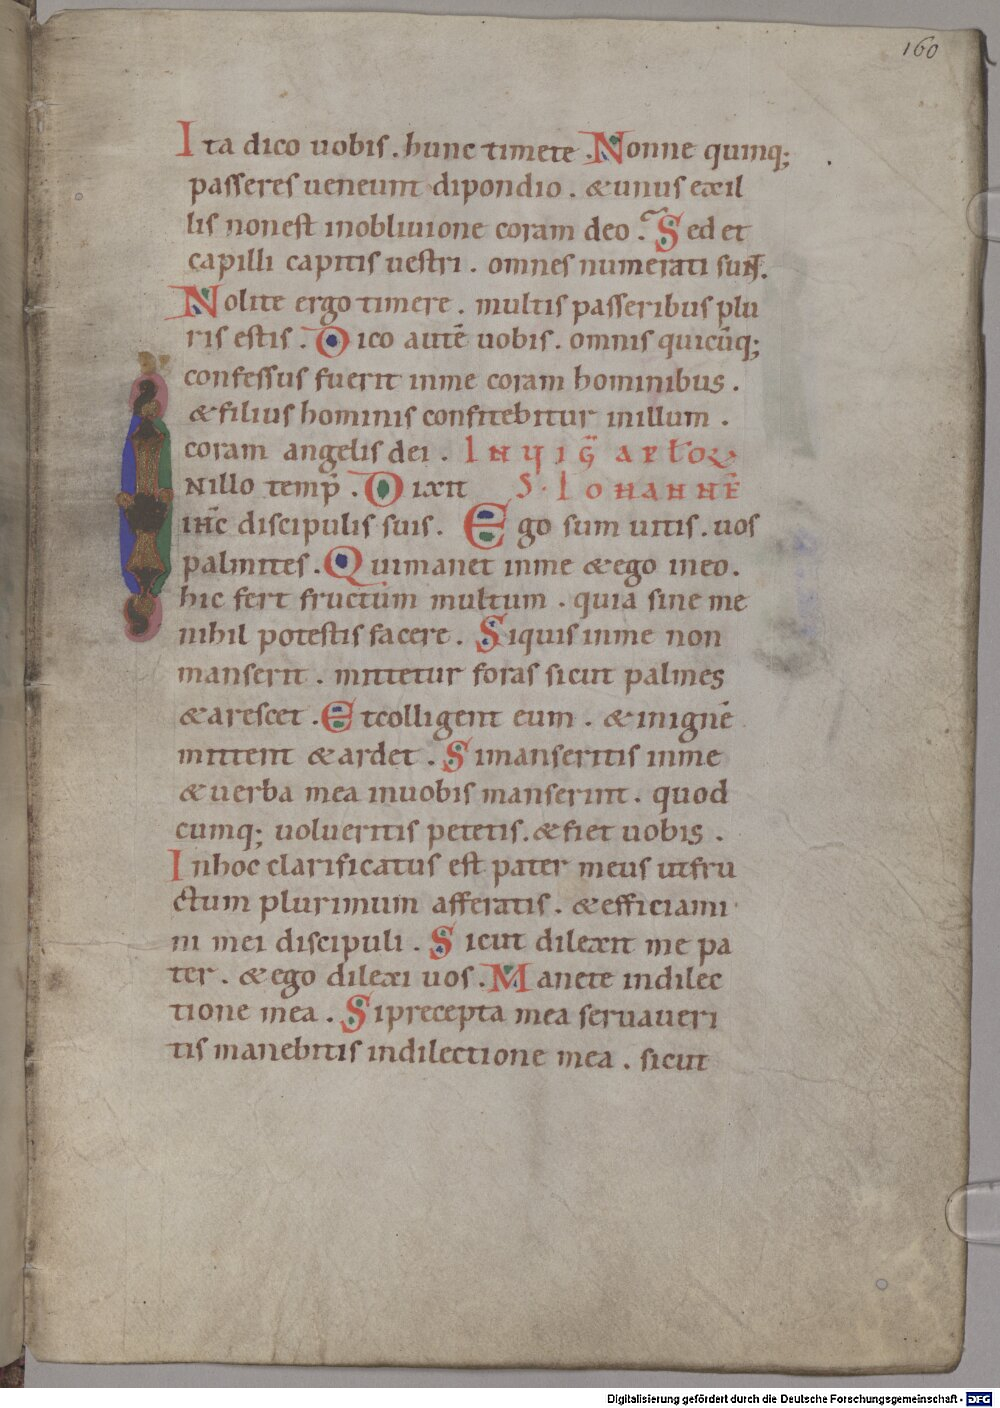 160
Ita dico uobis. hunc timete. Nonne quinq;
passeres ueneunt dipondio. & unus ex il
lis non est in obliuione coram deo. Sed et
capilli capitis uestri. omnes numerati sunt.
Nolite ergo timere. multis passeribus plu
ris estis. Dico autē uobis. omnis quicūq;
confessus fuerit in me coram hominibus.
& filius hominis confitebitur in illum.
coram angelis dei. IN UIG̅ APL̅OR
IN illo temp̄. Dixit S. IOHANNE̅
ihc̄ discipulis suis. Ego sum uitis. uos
palmites. Qui manet in me & ego in eo.
hic fert fructum multum. quia sine me
nihil potestis facere. Si quis in me non
manserit. mittetur foras sicut palmes
& arescet. Et colligent eum. & in ignē
mittent & ardet. Si manseritis in me
& uerba mea in uobis manserint. quod
cumq; uolueritis petetis. & fiet uobis.
In hoc clarificatus est pater meus ut fru
ctum plurimum afferatis. & efficiami
ni mei discipuli. Sicut dilexit me pa
ter. & ego dilexi uos. Manete in dilec
tione mea. Si precepta mea seruaueri
tis manebitis in dilectione mea. sicut
Digitalisierung gefördert durch die Deutsche Forschungsgemeinschaft - DFG